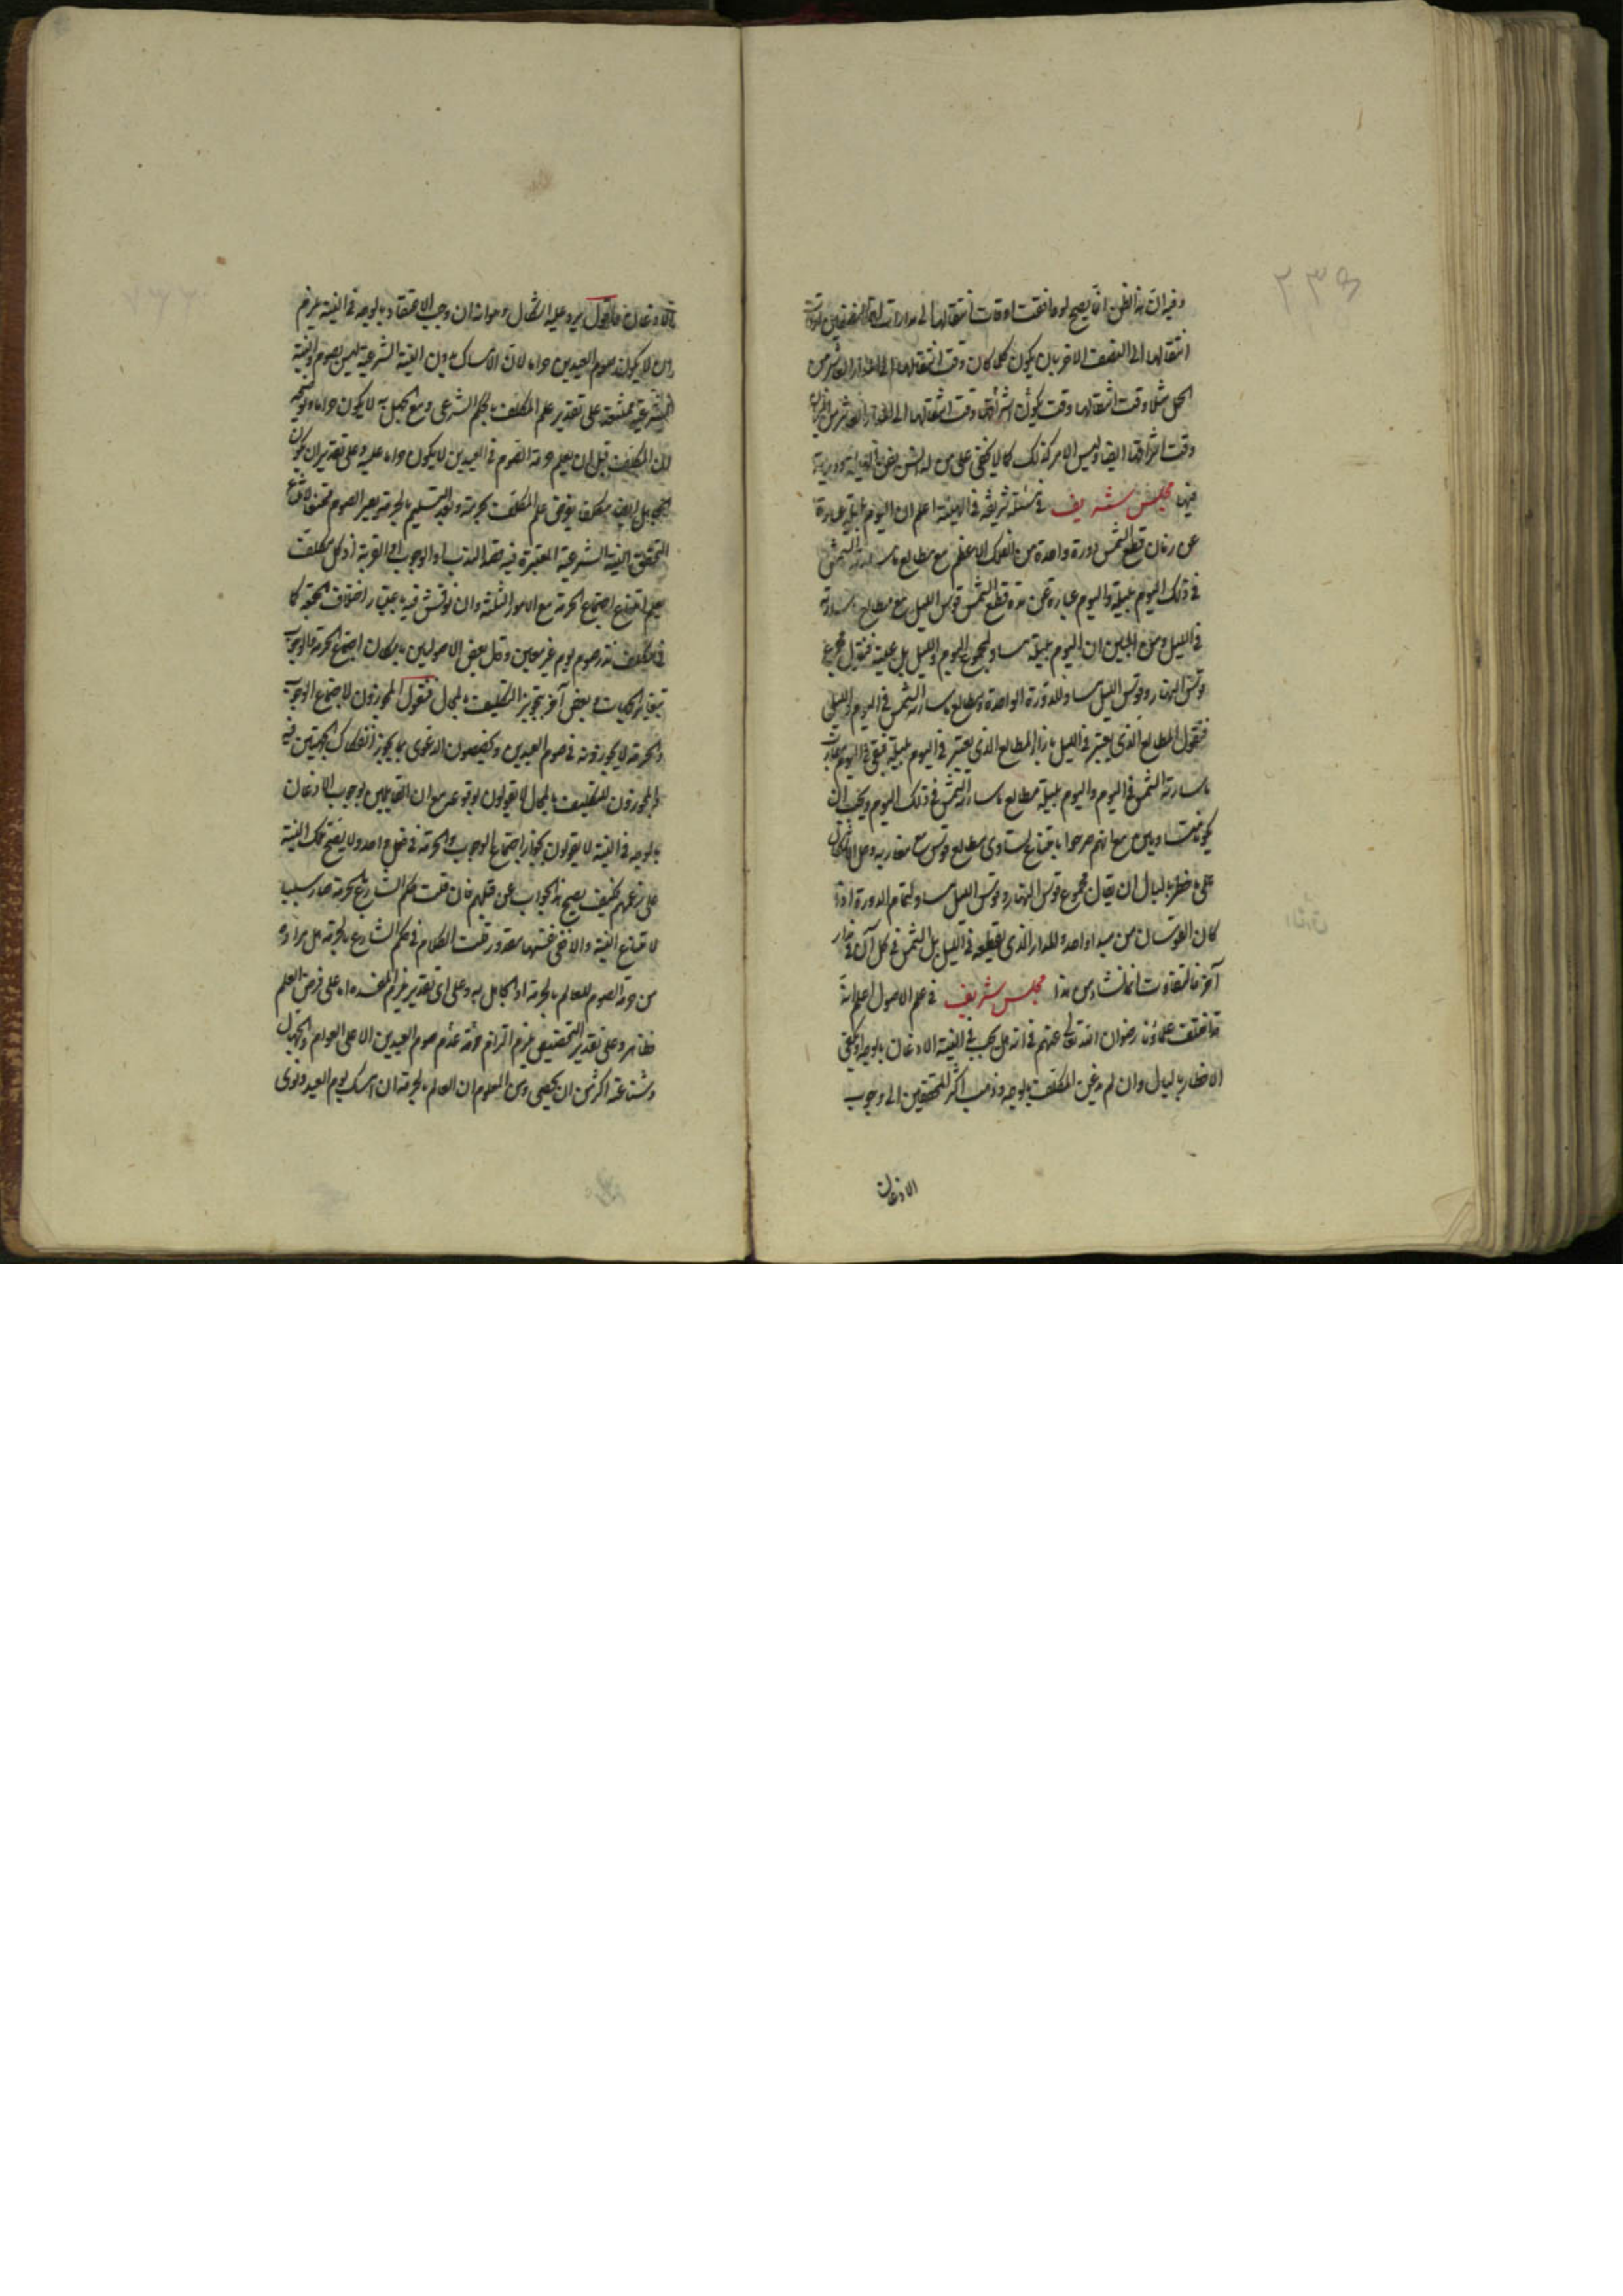 ٢٣٩
وفيه ان هذا الظن انما يصح لو وافقت اوقات انتقالها الى مدارات
انتقالها الى النصف الاخر بان يكون كلما كان وقت انتقالها الى المدار العاشر من
الحمل مثلا وقت انتقالها وقت كون وقت انتقالها الى
وقت اشراقها ايضا وليس الامر كذلك كما لا يخفى على من له
فيها مجلس شريف في مسئلة شريفة في الهيئة اعلم ان اليوم بليلته عبارة
عن زمان قطع الشمس دورة واحدة من الفلك الاعظم مع مطالع ما سارته الشمس
في ذلك اليوم بليلته واليوم عبارة عن مدة قطع الشمس قوس الليل مع مطالع ما سارته
في الليل ومن البين ان اليوم بليلته مساو لمجموع اليوم والليل بل عينه فنقول مجموع
قوس النهار وقوس الليل مساو للدورة الواحدة ومطالع ما سارته الشمس في اليوم والليل
فنقول المطالع الذي يعتبر في الليل بازاء المطالع الذي يعتبر في اليوم بليلته فبقي في اليوم
ما سارته الشمس في اليوم واليوم بليلته مطالع ما سارته الشمس في ذلك اليوم ويجب ان
يكونا متساويين مع انهم صرحوا بامتناع تساوي مطالع قوس مع مغاربه وحل الاشكال
على ما خطر بالبال ان يقال مجموع قوس النهار وقوس الليل مساو لتمام الدورة اذا
كان القوسان من مبدا واحد وللمدار الذي يقطعه في الليل بل الشمس في كل آن في مدار
آخر فالتفاوت انما نشأ من هذا مجلس شريف في علم الاصول اعلم انه
قد اختلف علماؤنا رضوان الله تعالى عنهم في انه هل يجب في النية الاذعان بالوجه او يكفي
الاخطار بالبال وان لم يذعن المكلف بالوجه وذهب اكثر المحققين الى وجوب
الاذعان
الاذعان فاقول يرد عليه اشكال وهو انه ان وجب الاعتقاد بالوجه في النية يلزم
ان لا يكون صوم العيدين حراما لان الامساك بدون النية الشرعية ليس بصوم والنية
الشرعية ممتنعة على تقدير علم المكلف بالحكم الشرعي ومع الجهل به لا يكون حراما
لان المكلف قبل ان يعلم حرمة الصوم في العيدين لا يكون حراما عليه وعلى تقدير ان يكون
الجاهل ايضا مكلفا يتوقف علم المكلف بحرمته وبعد التسليم بالحرمة يصير الصوم ممتنعا لامتناع
التحقق النية الشرعية المعتبرة فيه قصد الندب او الوجوب او القربة اذ كل مكلف
يعلم امتناع اجتماع الحرمة مع الامور الثلثة وان نوقش فيه باعتبار اختلاف الجهة كما
في نذر صوم يوم غير معين وقال بعض الاصوليين بامكان اجتماع الحرمة والوجوب
بعض آخر بتجويز التكليف بالمحال فنقول المجوزون لاجتماع الوجوب
والحرمة لا يجوزونه في صوم العيدين ويخصصون الدعوى بما يجوز انفكاك الجهتين فيه
والمجوزون للتكليف بالمحال لا يقولون بوقوعه مع ان القايلين بوجوب الاذعان
بالوجه في النية لا يقولون بجواز اجتماع الوجوب والحرمة في فعل واحد ولا يصح تلك النية
على زعمهم فكيف يصح هذا الجواب عن قبلهم فان قلت حكم الشارع بالحرمة صار سببا
لامتناع النية والا ففي نفسها مقدور قلت الكلام في حكم الشارع بالحرمة هل مراده
من حرمة الصوم للعالم بالحرمة او الجاهل به وعلى اي تقدير يلزم المفسدة اما على فرض العلم
فظاهر وعلى تقدير التخصيص يلزم التزام عدم صوم العيدين الا على العوام والجهال
وشناعته اكثر من ان يحصى ومن المعلوم ان العالم بالحرمة ان امسك يوم العيد ونوى